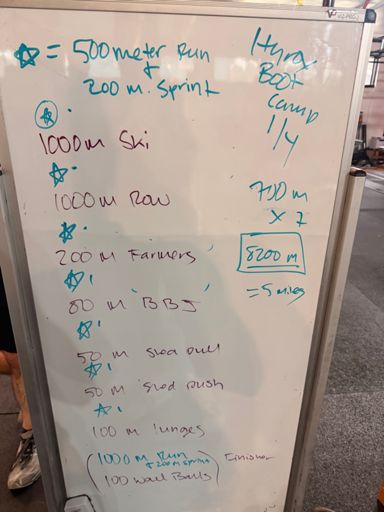 ☆ = 500 meter Run
+
200 m. Sprint
Hyrox
Boot
Camp
1/4
☆.
1000 m Ski
☆.
1000 m Row
☆.
200 m Farmers
☆.
80 m BBJ
☆.
50 m sled pull
☆.
50 m sled push
☆.
100 m lunges
(1000 m Run
+ 200 m sprint)
100 wall Balls
Finisher
700 m
x 7
8200 m
= 5 miles